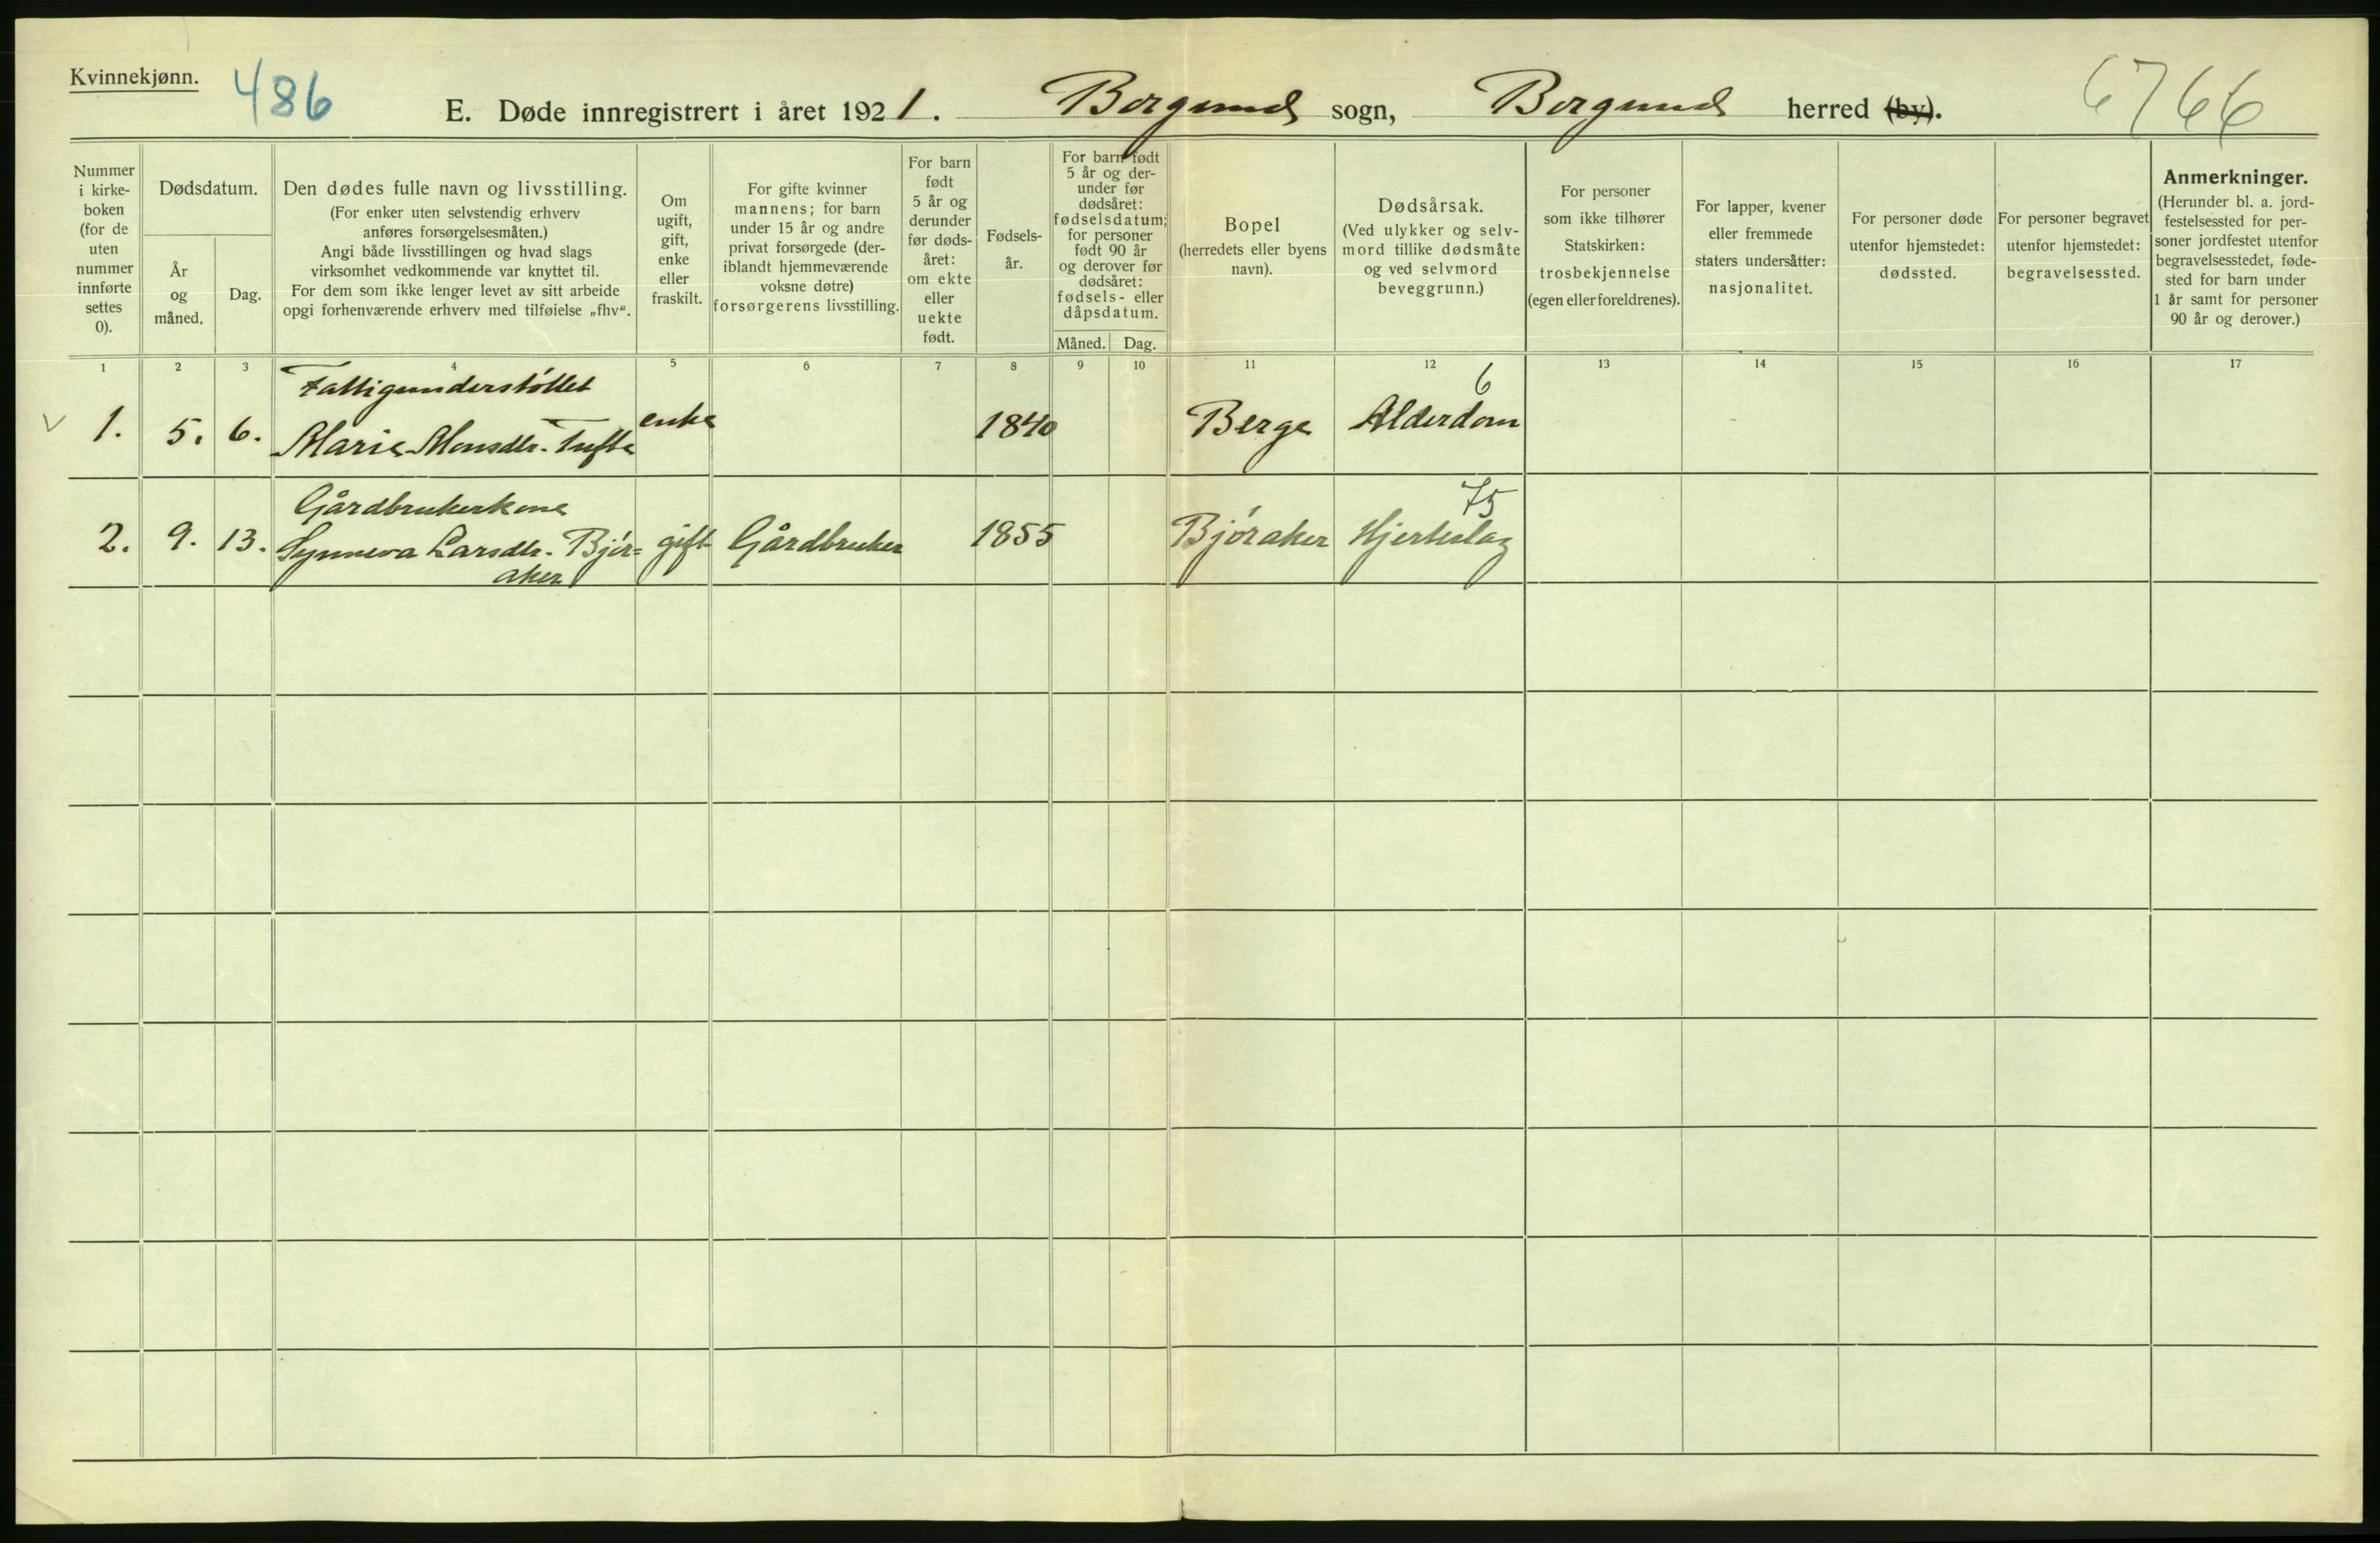 Kvinnekjønn.
486
E. Døde innregistrert i året 1921. Borgund sogn, Borgund herred (by).
6766
Nummer
i kirke-
boken
(for de
uten
nummer
innførte
settes
0).
Dødsdatum.
År
og
måned.
Dag.
Den dødes fulle navn og livsstilling.
(For enker uten selvstendig erhverv
anføres forsørgelsesmåten.)
Angi både livsstillingen og hvad slags
virksomhet vedkommende var knyttet til.
For dem som ikke lenger levet av sitt arbeide
opgi forhenværende erhverv med tilføielse „fhv“.
Om
ugift,
gift,
enke
eller
fraskilt.
For gifte kvinner
mannens; for barn
under 15 år og andre
privat forsørgede (der-
iblandt hjemmeværende
voksne døtre)
forsørgerens livsstilling.
For barn
født
5 år og
derunder
før døds-
året:
om ekte
eller
uekte
født.
Fødsels-
år.
For barn født
5 år og der-
under før
dødsåret:
fødselsdatum;
for personer
født 90 år
og derover før
dødsåret:
fødsels- eller
dåpsdatum.
Måned. Dag.
Bopel
(herredets eller byens
navn).
Dødsårsak.
(Ved ulykker og selv-
mord tillike dødsmåte
og ved selvmord
beveggrunn.)
For personer
som ikke tilhører
Statskirken:
trosbekjennelse
(egen eller foreldrenes).
For lapper, kvener
eller fremmede
staters undersåtter:
nasjonalitet.
For personer døde
utenfor hjemstedet:
dødssted.
For personer begravet
utenfor hjemstedet:
begravelsessted.
Anmerkninger.
(Herunder bl. a. jord-
festelsessted for per-
soner jordfestet utenfor
begravelsesstedet, føde-
sted for barn under
1 år samt for personer
90 år og derover.)
1 2 3 4 5 6 7 8 9 10 11 12 13 14 15 16 17
Fattigunderstøttet 6
1. 5. 6. Marie Monsdtr. Tufte enke 1840 Berge Alderdom
Gårdbrukerkone 75
2. 9. 13. Synneva Larsdtr. Bjør= gift Gårdbruker 1855 Bjøraker Hjerteslag
aker